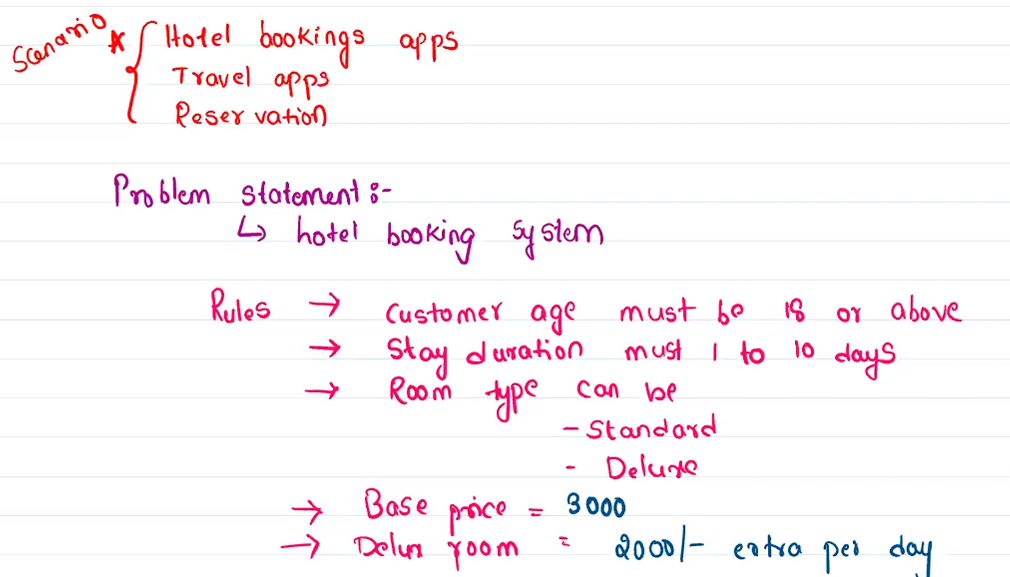 Scenario * Hotel bookings apps
Travel apps
Reservation
Problem statement :-
↳ hotel booking system
Rules → Customer age must be 18 or above
→ Stay duration must 1 to 10 days
→ Room type can be
- Standard
- Deluxe
→ Base price = 3000
→ Delux room = 2000/- extra per day